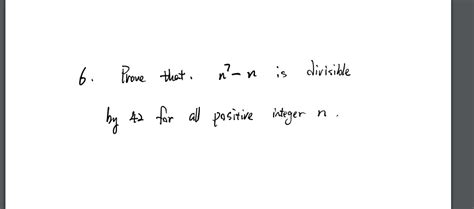 6. Prove that. n⁷-n is divisible
by 42 for all positive integer n.